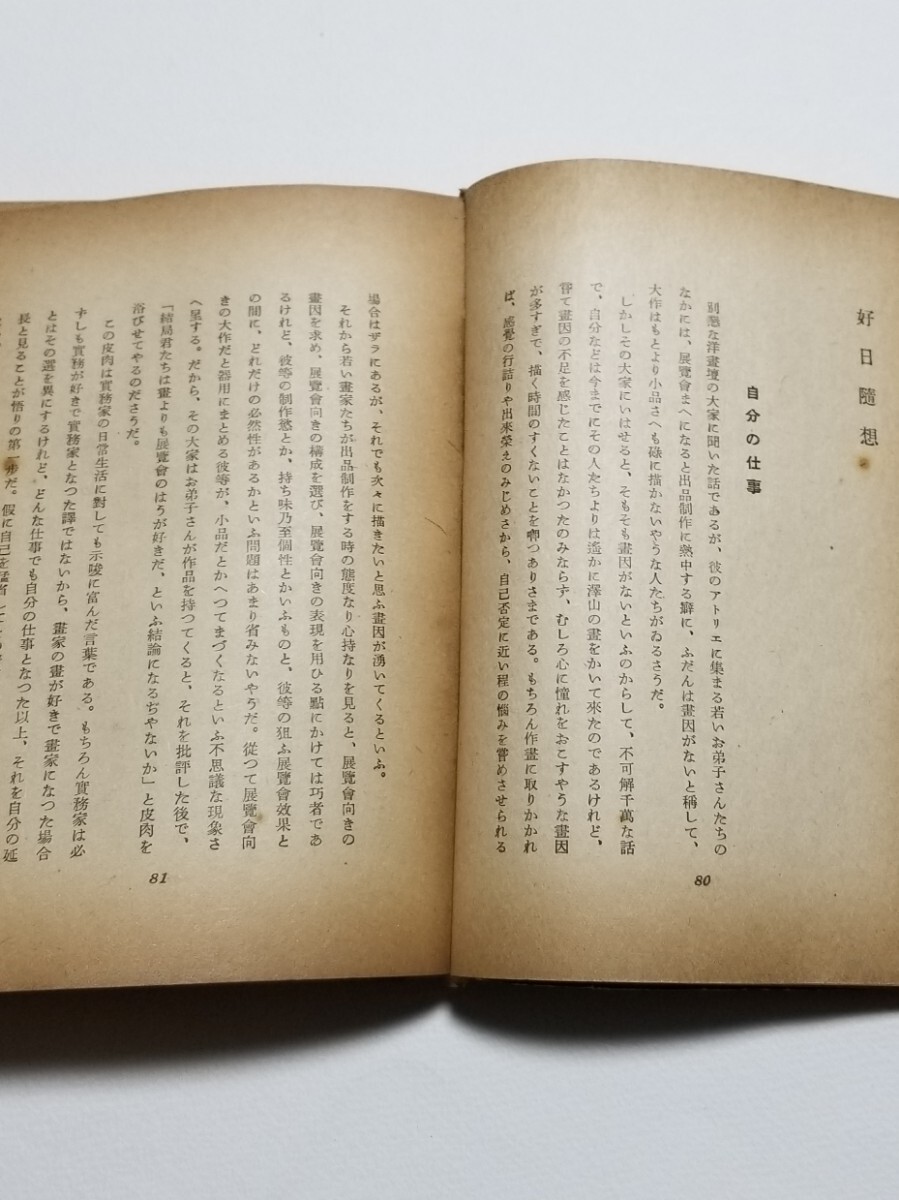 好日隨想
自分の仕事
別懇な洋畫壇の大家に聞いた話であるが、彼のアトリエに集まる若いお弟子さんたちの
なかには、展覽會まへになると出品制作に熱中する癖に、ふだんは畫因がないと稱して、
大作はもとより小品さへも碌に描かないやうな人たちがゐるさうだ。
しかしその大家にいはせると、そもそも畫因がないといふのからして、不可解千萬な話
で、自分などは今までにその人たちよりは遙かに澤山の畫をかいて來たのであるけれど、
嘗て畫因の不足を感じたことはなかつたのみならず、むしろ心に憧れをおこすやうな畫因
が多すぎて、描く時間のすくないことを喞つありさまである。もちろん作畫に取りかかれ
ば、感覺の行詰りや出來榮えのみじめさから、自己否定に近い程の惱みを嘗めさせられる
80
場合はザラにあるが、それでも次々に描きたいと思ふ畫因が湧いてくるといふ。
それから若い畫家たちが出品制作をする時の態度なり心持なりを見ると、展覽會向きの
畫因を求め、展覽會向きの構成を選び、展覽會向きの表現を用ひる點にかけては巧者であ
るけれど、彼等の制作慾とか、持ち味乃至個性とかいふものと、彼等の狙ふ展覽會效果と
の間に、どれだけの必然性があるかといふ問題はあまり省みないやうだ。從つて展覽會向
きの大作だと器用にまとめる彼等が、小品だとかへつてまづくなるといふ不思議な現象さ
へ呈する。だから、その大家はお弟子さんが作品を持つてくると、それを批評した後で、
「結局君たちは畫よりも展覽會のはうが好きだ、といふ結論になるぢやないか」と皮肉を
浴びせてやるのださうだ。
この皮肉は實務家の日常生活に對しても示唆に富んだ言葉である。もちろん實務家は必
ずしも實務が好きで實務家となつた譯ではないから、畫家の畫が好きで畫家になつた場合
とはその選を異にするけれど、どんな仕事でも自分の仕事となつた以上、それを自分の延
長と見ることが悟りの第一步だ。假に自己を
81